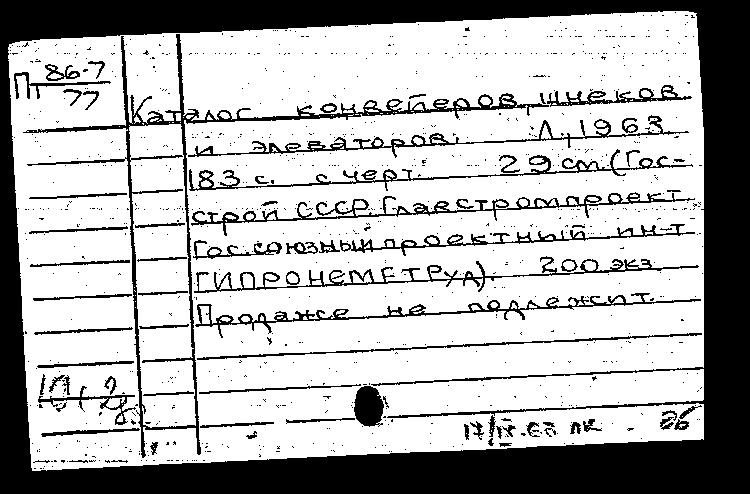 Пт 86-7
77
Каталог конвейеров, шнеков
и элеваторов. Л., 1963
183 с. с черт. 29 см. (Гос-
строй СССР. Главстромпроект
Гос. союзный проектный ин-т
ГИПРОНЕМЕТРУД). 200 экз.
Продаже не подлежит.
17/IX-63 ЛК - 36